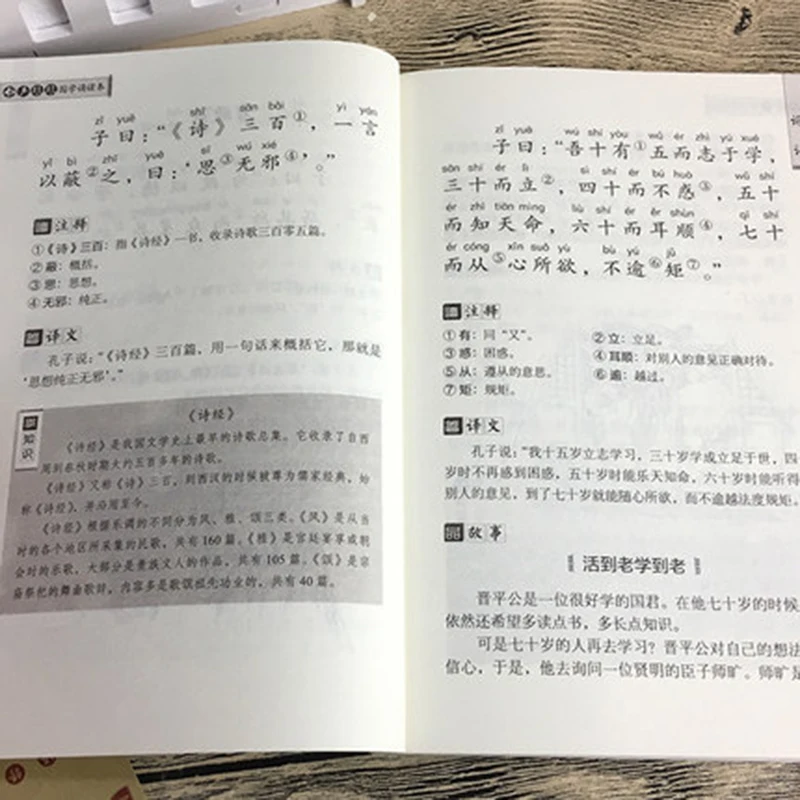 国学诵读本
zǐ yuē shī sān bǎi yì yán
子曰：“《诗》三百①，一言
yǐ bì zhī yuē sī wú xié
以蔽②之，曰：‘思③无邪④’。”
注释
①《诗》三百：指《诗经》一书，收录诗歌三百零五篇。
②蔽：概括。
③思：思想。
④无邪：纯正。
译文
孔子说：“《诗经》三百篇，用一句话来概括它，那就是
‘思想纯正无邪’。”
知识
《诗经》
《诗经》是我国文学史上最早的诗歌总集。它收录了自西
周到春秋时期大约五百多年的诗歌。
《诗经》又称《诗》三百，到西汉的时候被尊为儒家经典，始
称《诗经》，并沿用至今。
《诗经》根据乐调的不同分为风、雅、颂三类。《风》是从当
时的各个地区所采集的民歌，共有 160 篇。《雅》是宫廷宴享或朝
会时的乐歌，大部分是贵族文人的作品，共有 105 篇。《颂》是宗
庙祭祀的舞曲歌辞，内容多是歌颂祖先功业的，共有 40 篇。
zǐ yuē wú shí yòu wǔ ér zhì yú xué
子曰：“吾十有①五而志于学，
sān shí ér lì sì shí ér bú huò wǔ shí
三十而立②，四十而不惑③，五十
ér zhī tiān mìng liù shí ér ěr shùn qī shí
而知天命，六十而耳顺④，七十
ér cóng xīn suǒ yù bù yú jǔ
而从⑤心所欲，不逾⑥矩⑦。”
注释
①有：同“又”。 ②立：立足。
③惑：困惑。 ④耳顺：对别人的意见正确对待。
⑤从：遵从的意思。 ⑥逾：越过。
⑦矩：规矩。
译文
孔子说：“我十五岁立志学习，三十岁学成立足于世，四
岁时不再感到困惑，五十岁时能乐天知命，六十岁时能听得
别人的意见，到了七十岁就能随心所欲，而不逾越法度规矩。
故事
活到老学到老
晋平公是一位很好学的国君。在他七十岁的时候，
依然还希望多读点书，多长点知识。
可是七十岁的人再去学习？晋平公对自己的想法
信心，于是，他去询问一位贤明的臣子师旷。师旷是